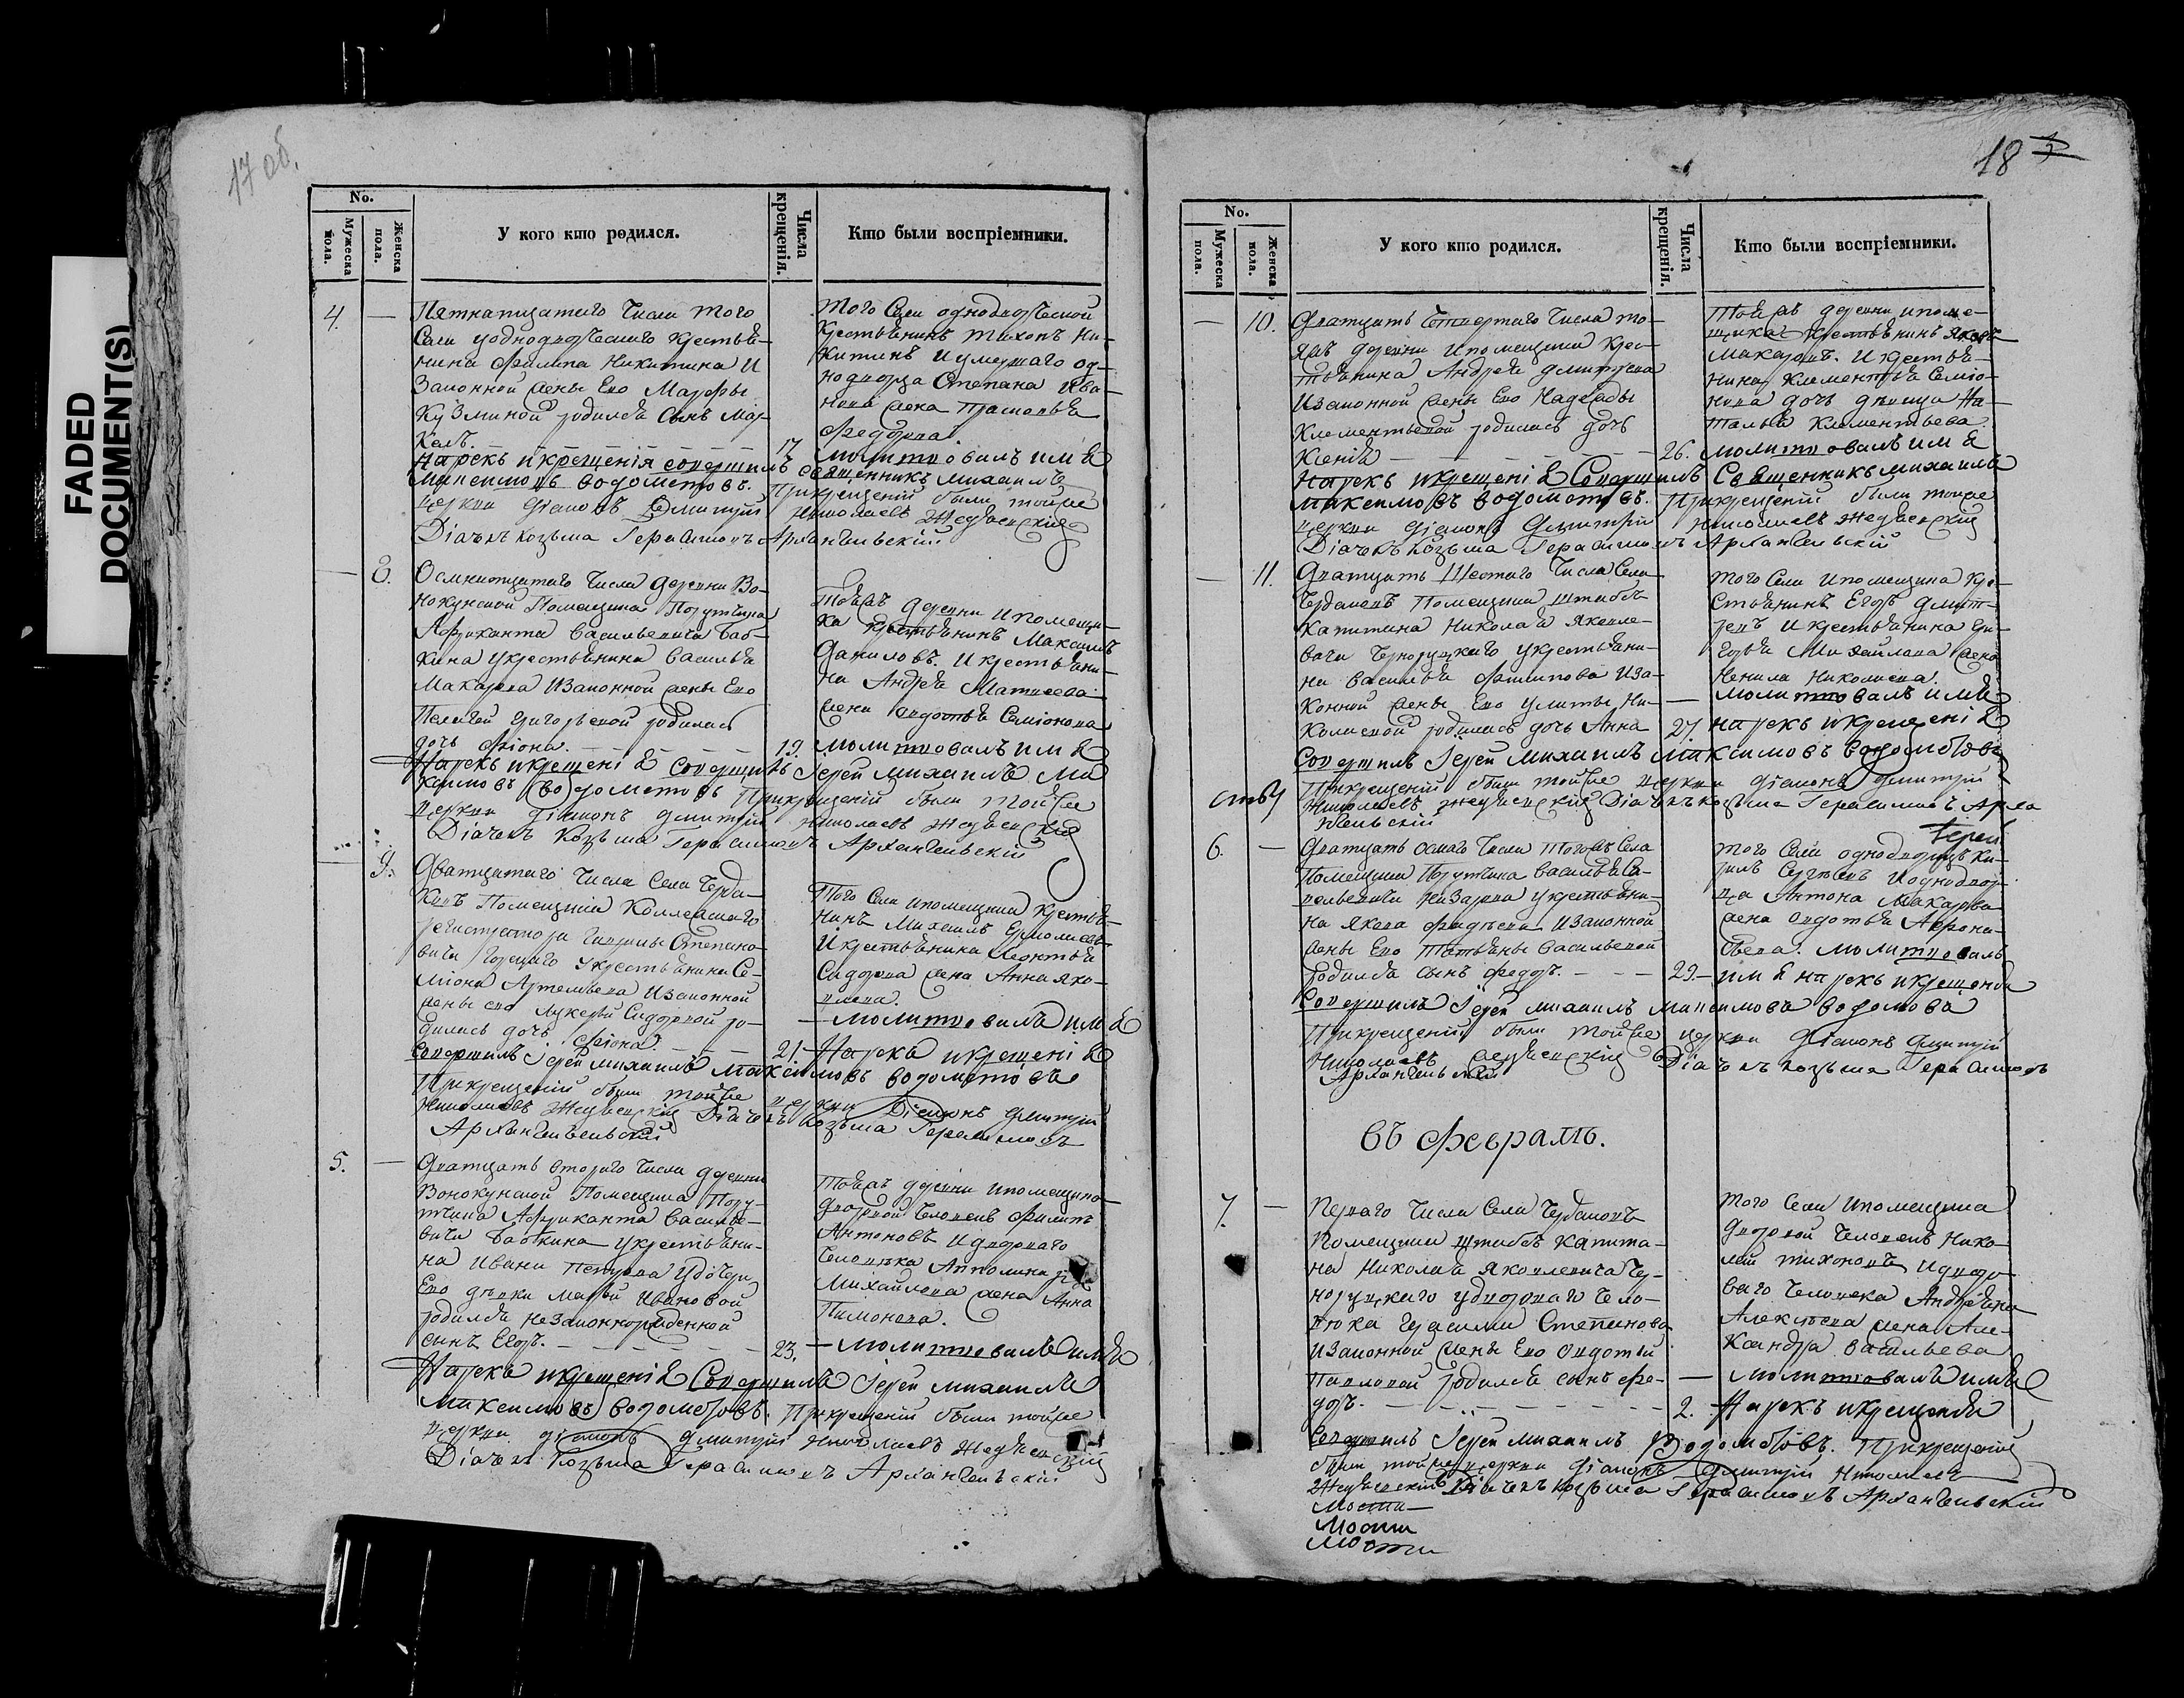 FADED
DOCUMENT(S)
17 об.
No.
Мужеска пола.
Женска пола.
У кого кто родился.
Числа крещенія.
Кто были воспріемники.
4. —
Пятнатцатаго Числа того
Села уоднодворческаго крестья-
нина Филипа Никитина И
Законной жены Его Марфы
Кузминой родился Сынъ Мар-
келъ. 17
того Села однодворческой
Крестьянинъ Тихонъ Ни-
китинъ Иумершаго од-
нодворца Степана Ива-
нова жена
Федорова.
молитвовалъ имя
Нарекъ икрещенія совершилъ священникъ Михаилъ
Максимовъ Водометовъ. Прикрещеніи были тойже
церкви Діаконъ Дмитрій Николаевъ
Діачекъ Козьма Герасимовъ Архангельскій
— 8.
Осмнатцатаго Числа деревни Во-
нокунской Помещика Порутчика
Африканта Васильевича Баб-
кина укрестьянина Василья
Макарова Изаконной жены Его
Пелагеи Григорьевой родилась
дочь Фіона. — 19.
Тояжъ деревни ипомещи-
ка крестьянинъ Максимъ
Даниловъ. Икрестьяни-
на Андрея Матвеева
жена Авдотья Семіонова
молитвовалъ имя
Нарекъ икрещеніе совершилъ Іерей Михаилъ Ма
ксимовъ Водометовъ Прикрещеніи были тойже
церкви Діаконъ Дмитрій Николаевъ
Діачекъ Козьма Герасимовъ Архангельскій
— 9.
Дватцатаго Числа Села Черда-
ковъ Помещика Коллежскаго
регистратора Гаврилы Степано-
вича укрестьянина Се-
міона Артемьева Изаконной
жены его Лукерьи Сидоровой ро-
дилась дочь Фіона. — 21.
Того Села ипомещика крестья-
нинъ Михаилъ Ермолаевъ
Икрестьянина Леонтья
Сидорова жена Анна Яко-
влева.
— молитвовалъ имя
Нарекъ икрещеніе
совершилъ Іерей Михаилъ Максимовъ Водометовъ
Прикрещеніи были тойже церкви Діаконъ Дмитрій
Николаевъ Діачекъ Козьма Герасимовъ
Архангельскій
5. —
Дватцать втораго Числа деревни
Вонокунской Помещика Пору-
тчика Африканта Василье-
вича Бабкина укрестьяни-
на Ивана Петрова Удочери
Его девки Марьи Ивановой
родился незаконнорожденной
сынъ Егоръ. — 23.
Тояжъ деревни ипомещика
дворовой Человекъ Филипъ
Антоновъ Идвороваго
Человека Апполинарія
Михайлова жена Анна
Пимонова.
— молитвовалъ имя
Нарекъ икрещеніе Совершилъ Іерей Михаилъ
Максимовъ Водометовъ. Прикрещеніи были тойже
церкви Діаконъ Дмитрій Николаевъ
Діачекъ Козьма Герасимовъ Архангельскій
18
No.
Мужеска пола.
Женска пола.
У кого кто родился.
Числа крещенія.
Кто были воспріемники.
— 10.
Дватцать Четвертаго Числа то-
яжъ деревни Ипомещика крес-
тьянина Андрея Дмитрева
Изаконной жены Его Надежды
Клементьевой родилась дочь
Ксенія — 26.
Тояжъ деревни ипоме-
щика крестьянинъ Яковъ
Макаровъ. Икрестья-
нина Клементья Семіо-
нова дочь девица На-
талья Клементьева
молитвовалъ имя
Нарекъ икрещеніе Совершилъ Священникъ Михаилъ
Максимовъ Водометовъ. Прикрещеніи были тойже
церкви Діаконъ Дмитрій Николаевъ
Діачекъ Козьма Герасимовъ Архангельскій
— 11.
Дватцать Шестаго Числа Села
Чердаковъ Помещика штабсъ
Капитана Николая Яковле-
вича Чернорудкаго укрестьяни-
на Василья Филипова Иза-
конной жены Его Улиты Ни-
колаевой родилась дочь Анна 27.
того Села Ипомещика кре-
стьянинъ Егоръ Дмит-
ревъ Икрестьянина
Михайлова жена
Ненила Николаева.
— молитвовалъ имя
нарекъ икрещеніе
Совершилъ Іерей Михаилъ Максимовъ Водометовъ
Прикрещеніи были тойже церкви Діаконъ Дмитрій
Николаевъ Діачекъ Козьма Герасимовъ Арха
нгельскій
Іерей
6. —
Дватцать осмаго Числа Тогожъ Села
Помещика Порутчика Василья Са-
вельевича Назарова укрестьяни-
на Якова Фадеева Изаконной
жены Его Татьяны Васильевой
родился сынъ Федоръ. — 29.
того Села однодворецъ Ки-
рилъ Сергеевъ Иоднодвор-
ца Антона Макарова
жена Авдотья Афона-
сьева. молитвовалъ
имя нарекъ икрещеніе
Совершилъ Іерей Михаилъ Максимовъ
Прикрещеніи были тойже церкви Діаконъ Дмитрій
Николаевъ Діачекъ Козьма Герасимовъ
Архангельскій
Въ Февралѣ.
7. —
Перваго Числа Села Чердаковъ
Помещика штабсъ Капита-
на Николая Яковлевича Чер-
норудкаго удвороваго Чело-
века Герасима Степанова
Изаконной жены Его Авдотьи
Павловой родился сынъ Фе-
доръ. — 2.
того Села Ипомещика
Дворовой Человекъ Нико-
лай Тихоновъ Идворо-
ваго Человека Андреяна
Алексеева жена Але-
ксандра Васильева
— молитвовалъ имя
Нарекъ икрещеніе
Совершилъ Іерей Михаилъ Водометовъ. Прикрещеніи
были тойже церкви Діаконъ Дмитрій Николаевъ
Діачекъ Козьма Герасимовъ Архангельскій